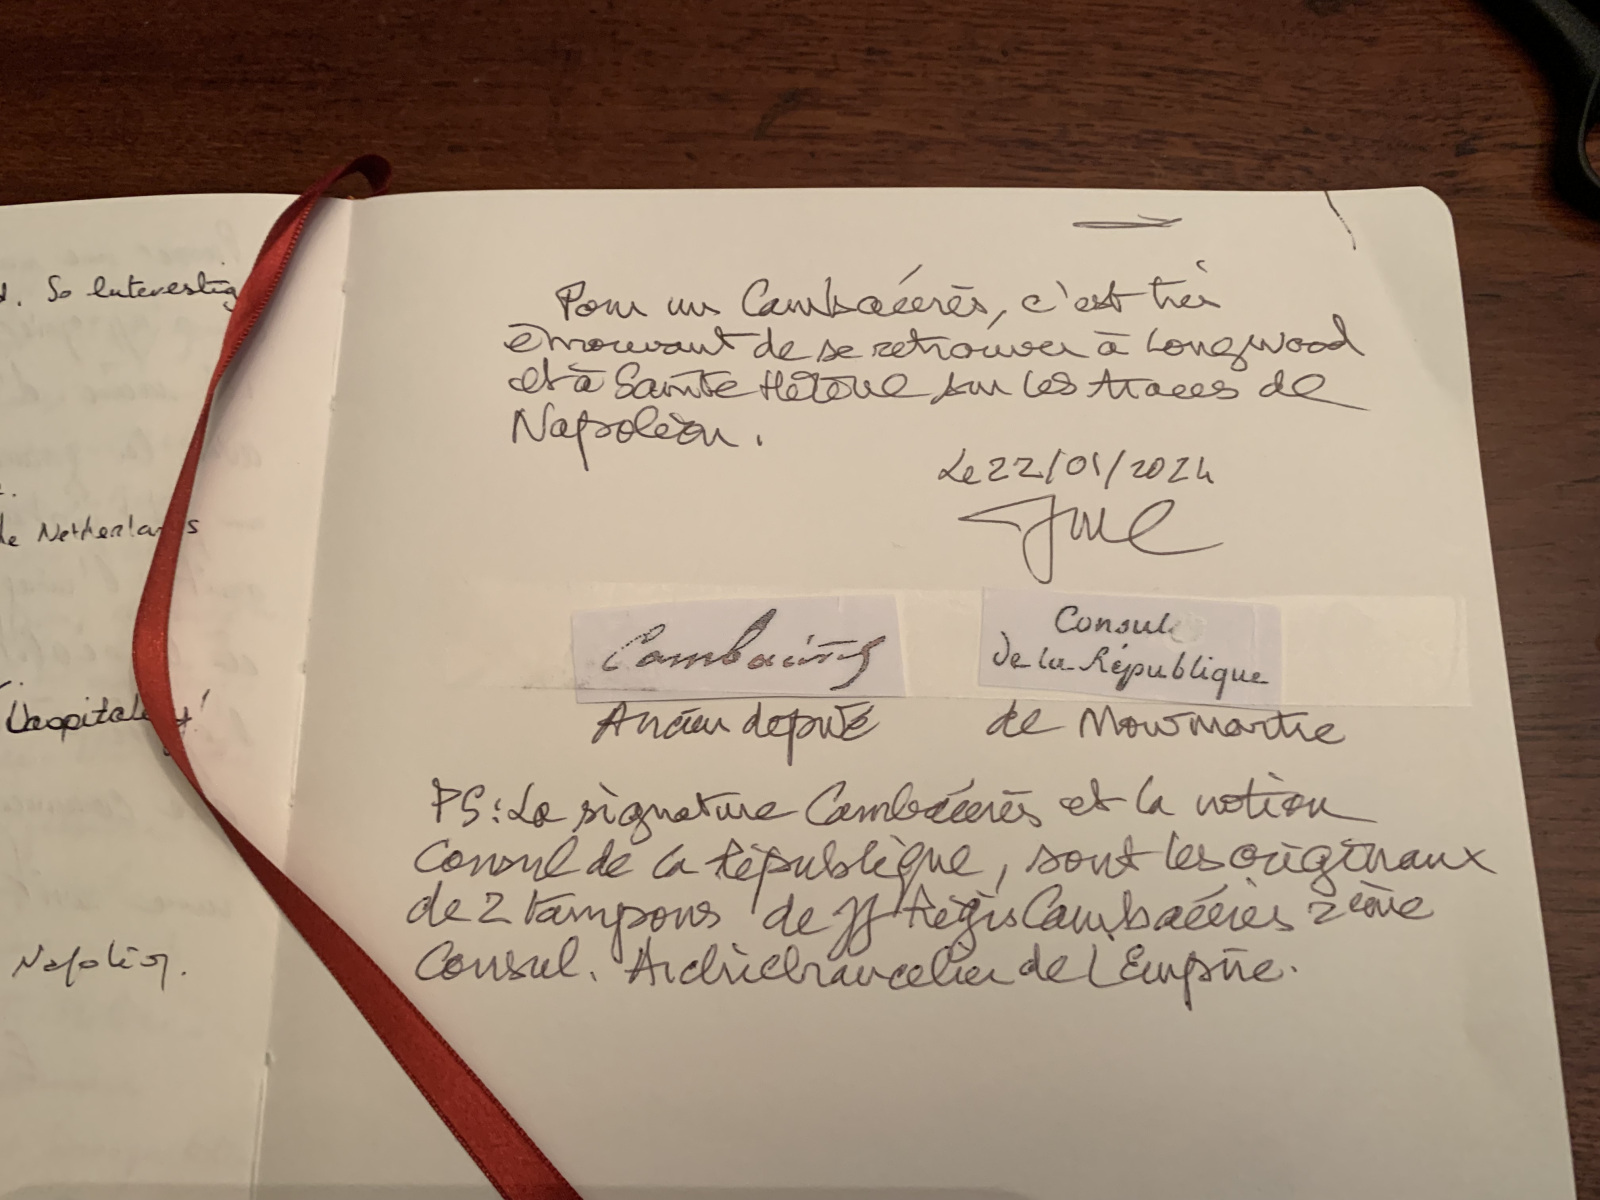 So Interestig
de Netherlands
Hospitality!
Napoléon.
Pour un Cambacérès, c'est très
émouvant de se retrouver à Longwood
et à Sainte Hélène sur les traces de
Napoléon.
Le 22/01/2024
Cambacérès
Consul
de la République
Ancien député
de Montmartre
PS: La signature Cambacérès et la notion
Consul de la République, sont les originaux
de 2 tampons de JJ Régis Cambacérès 2ème
Consul. Archichancelier de L'Empire.